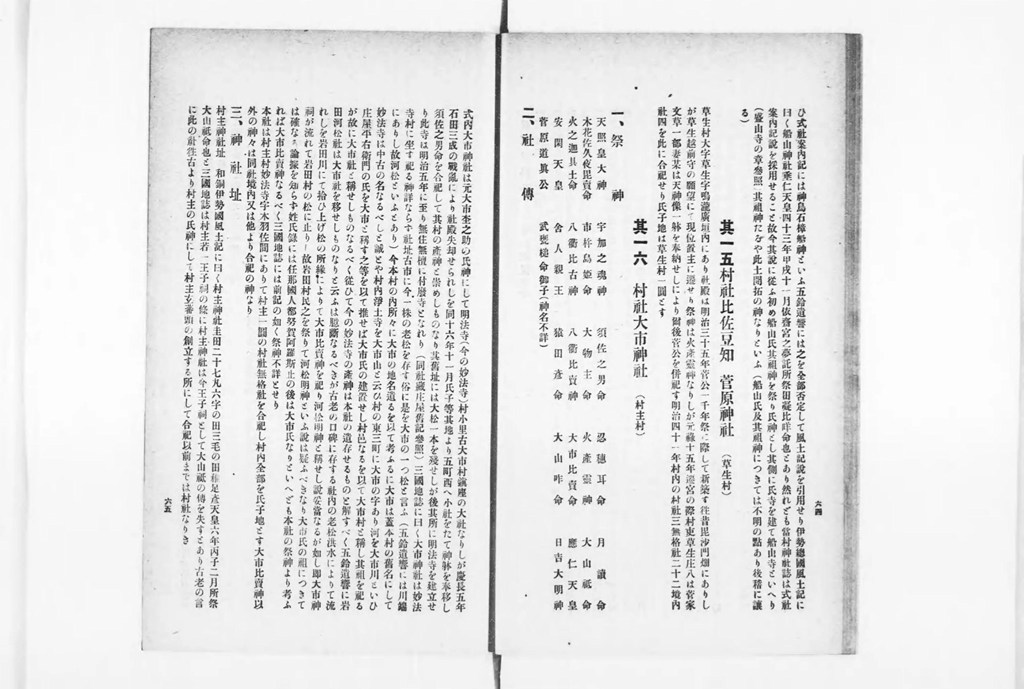 ひ式社案內記には神島石樟船神といふ五鈴遺響には之を全部否定して風土記說を引用せり伊勢總國風土記に
曰く船山神社乘仁天皇四十三年甲戌十一月依齋宮之夢託所祭田凝比咩命也とあり然れども當村神社誌は式社
案內記說を採用せること故今其說に從ふ初め船山氏其祖神を祭り氏神とし其側に氏寺を建て船山寺といへり
(靈山寺の章參照)其祖神たるや此土開拓の神なりといふ(船山氏及其祖神については不明の點あり後稽に讓
る)
其一五村社比佐豆知 菅原神社 (草生村)
草生村大字草生字鳴瀧廣垣內にあり社殿は明治三十五年菅公一千年祭に際して新築す往昔毘沙門畑にありし
が草生越前守の願望にて現位置に遷せり祭神は火產靈神なりしが元祿十五年遷宮の際村東草生庄八は菅家
文草一部妻某は天神像一躰を奉納せしにより爾後菅公を併祀す明治四十一年村內の村社三無格社二十二境內
社四を此に合祀せり氏子地は草生村一圓とす
其一六 村社大市神社 (村主村)
一、祭神
天照皇大神 宇加之魂神 須佐之男命 忍穗耳命 月讀命
木花佐久夜毘賣命 市杵島姬命 大物主命 火產靈神 大山祇命
火之迦具土命 八衢比古神 八衢比賣神 大市比賣命 應仁天皇
安閑天皇 舍人親王 猿田彥命 大山咋命 日吉大明神
菅原道眞公 武甕槌命御子(神名不詳)
二、社傳
式內大市神社は元大市奎之助の氏神にして明法寺(今の妙法寺)村小里古大市村鎭座の大社なりしが慶長五年
石田三成の戰亂により社殿失却せられしを同十六年十一月氏子等其地より五町西へ小社をたて神躰を奉移し
須佐之男命を合祀して其村の產神と崇めしものなり其舊址には大松一本を殘せしが後其所に明法寺を建立せ
り此寺は明治五年に至り無住無檀に付廢寺となれり(同社藏庄屋舊記參照)三國地誌に曰く大市神社は妙法
寺村に坐す祀る神詳ならず社址古市に今一株の老松を存す俗に是を大市の一つ松と言ふ(五鈴遺響には川端
にありし故河松といふとあり)今本村の內所々に大市の地名遺るを以て考ふるに大市は蓋本村の舊名にして
妙法寺は中古の名なるべしと誠とや村內淨土寺を大市山と云ひ村の東三町に大市の字あり河を大市川といひ
庄屋平右衞門の氏を大市と稱す之等を以て推せば大市氏の建置せし村邑なるを以て大市村と稱し其祖を祀る
が故に大市社と稱せしものなるべく從ひて今の妙法寺の產神は本社の遺存せるものと解すべく五鈴遺響に岩
田河松社は大市社を移せしものなりと云ふは臆斷なるべきが古老の口碑に存する社內の老松洪水によりて流
れしを岩田川にて拾ひ上げ松の所緣によりて大市比賣神を祀り河松明神と稱せし說妥當なるが如し即大市神
祠が流れて岩田村の松に止り故岩田村民之を祭りて河松明神といふ說は疑ふべきなり大市氏の祖につきて
は確なる論據を知らず姓氏錄には任那國人都努賀阿羅斯止の後は大市氏なりといへども本社の祭神より考ふ
れば大市比賣神なるべく三國地誌には前記の如く祭神不詳とせり
本社は村主村妙法寺字木羽佐間にありて村主一圓の村社無格社を合祀し村內全部を氏子地とす大市比賣神以
外の神々は同社境內又は他より合祀の神なり
三、神社址
村主神社址 和銅伊勢國風土記に曰く村主神社圭田二十七丸六字の田三毛の田稚足彥天皇六年丙子二月所祭
大山祇命也と三國地誌は村主若一王子祠の條に村主神社は今王子祠として大山祇の傳を失すとあり古老の言
に此の社往古より村主の氏神にして村主玄蕃頭の創立する所にして合祀以前までは村社なりき
六四
六五